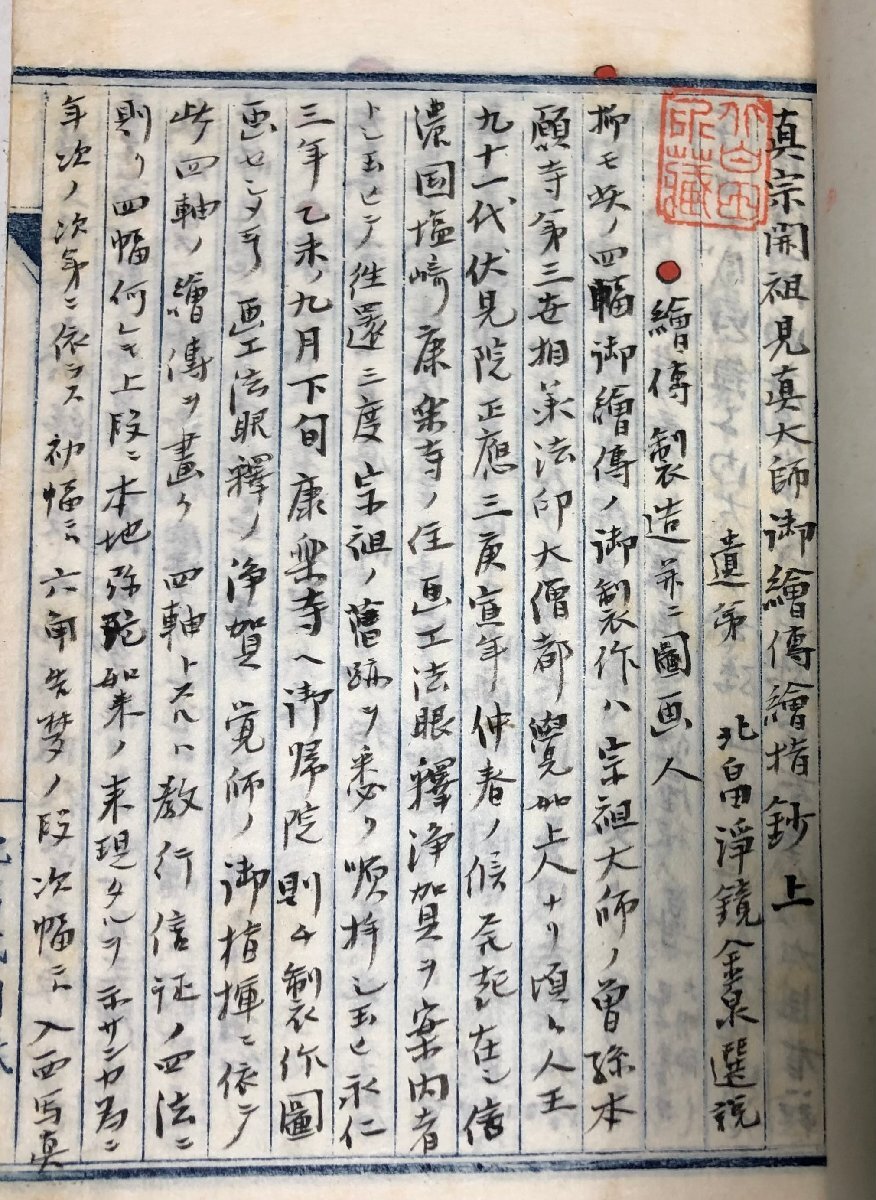 真宗開祖見真大師御繪傳繪指鈔上
遺弟 北畠淨鏡金泉選説
繪傳製造并ニ圖画人
抑モ此ノ四幅御繪傳ノ御制衣作ハ宗祖大師ノ曽孫本
願寺第三世相承法印大僧都覺如上人ナリ頃ハ人王
九十一代伏見院正應三庚寅年仲春ノ候 在シ信
濃国塩﨑康楽寺ノ住画工法眼釋浄加貝ヲ案内者
トシ玉ヒテ往還三度宗祖ノ舊跡ヲ悉ク順拝シ玉ヒ永仁
三年乙未ノ九月下旬康楽寺ヘ御帰院則チ制衣作圖
画セシメ玉フ画工法眼釋ノ浄賀覚師ノ御指揮ニ依テ
此四軸ノ繪傳ヲ畫ク四軸トスルハ教行信证ノ四法ニ
則リ四幅何レモ上段ニ本地弥陀如来ノ来現タルヲ示サンカ為ニ
年次ノ次第ニ依ラス初幅ニハ六角告夢ノ段次幅ニハ入西写真